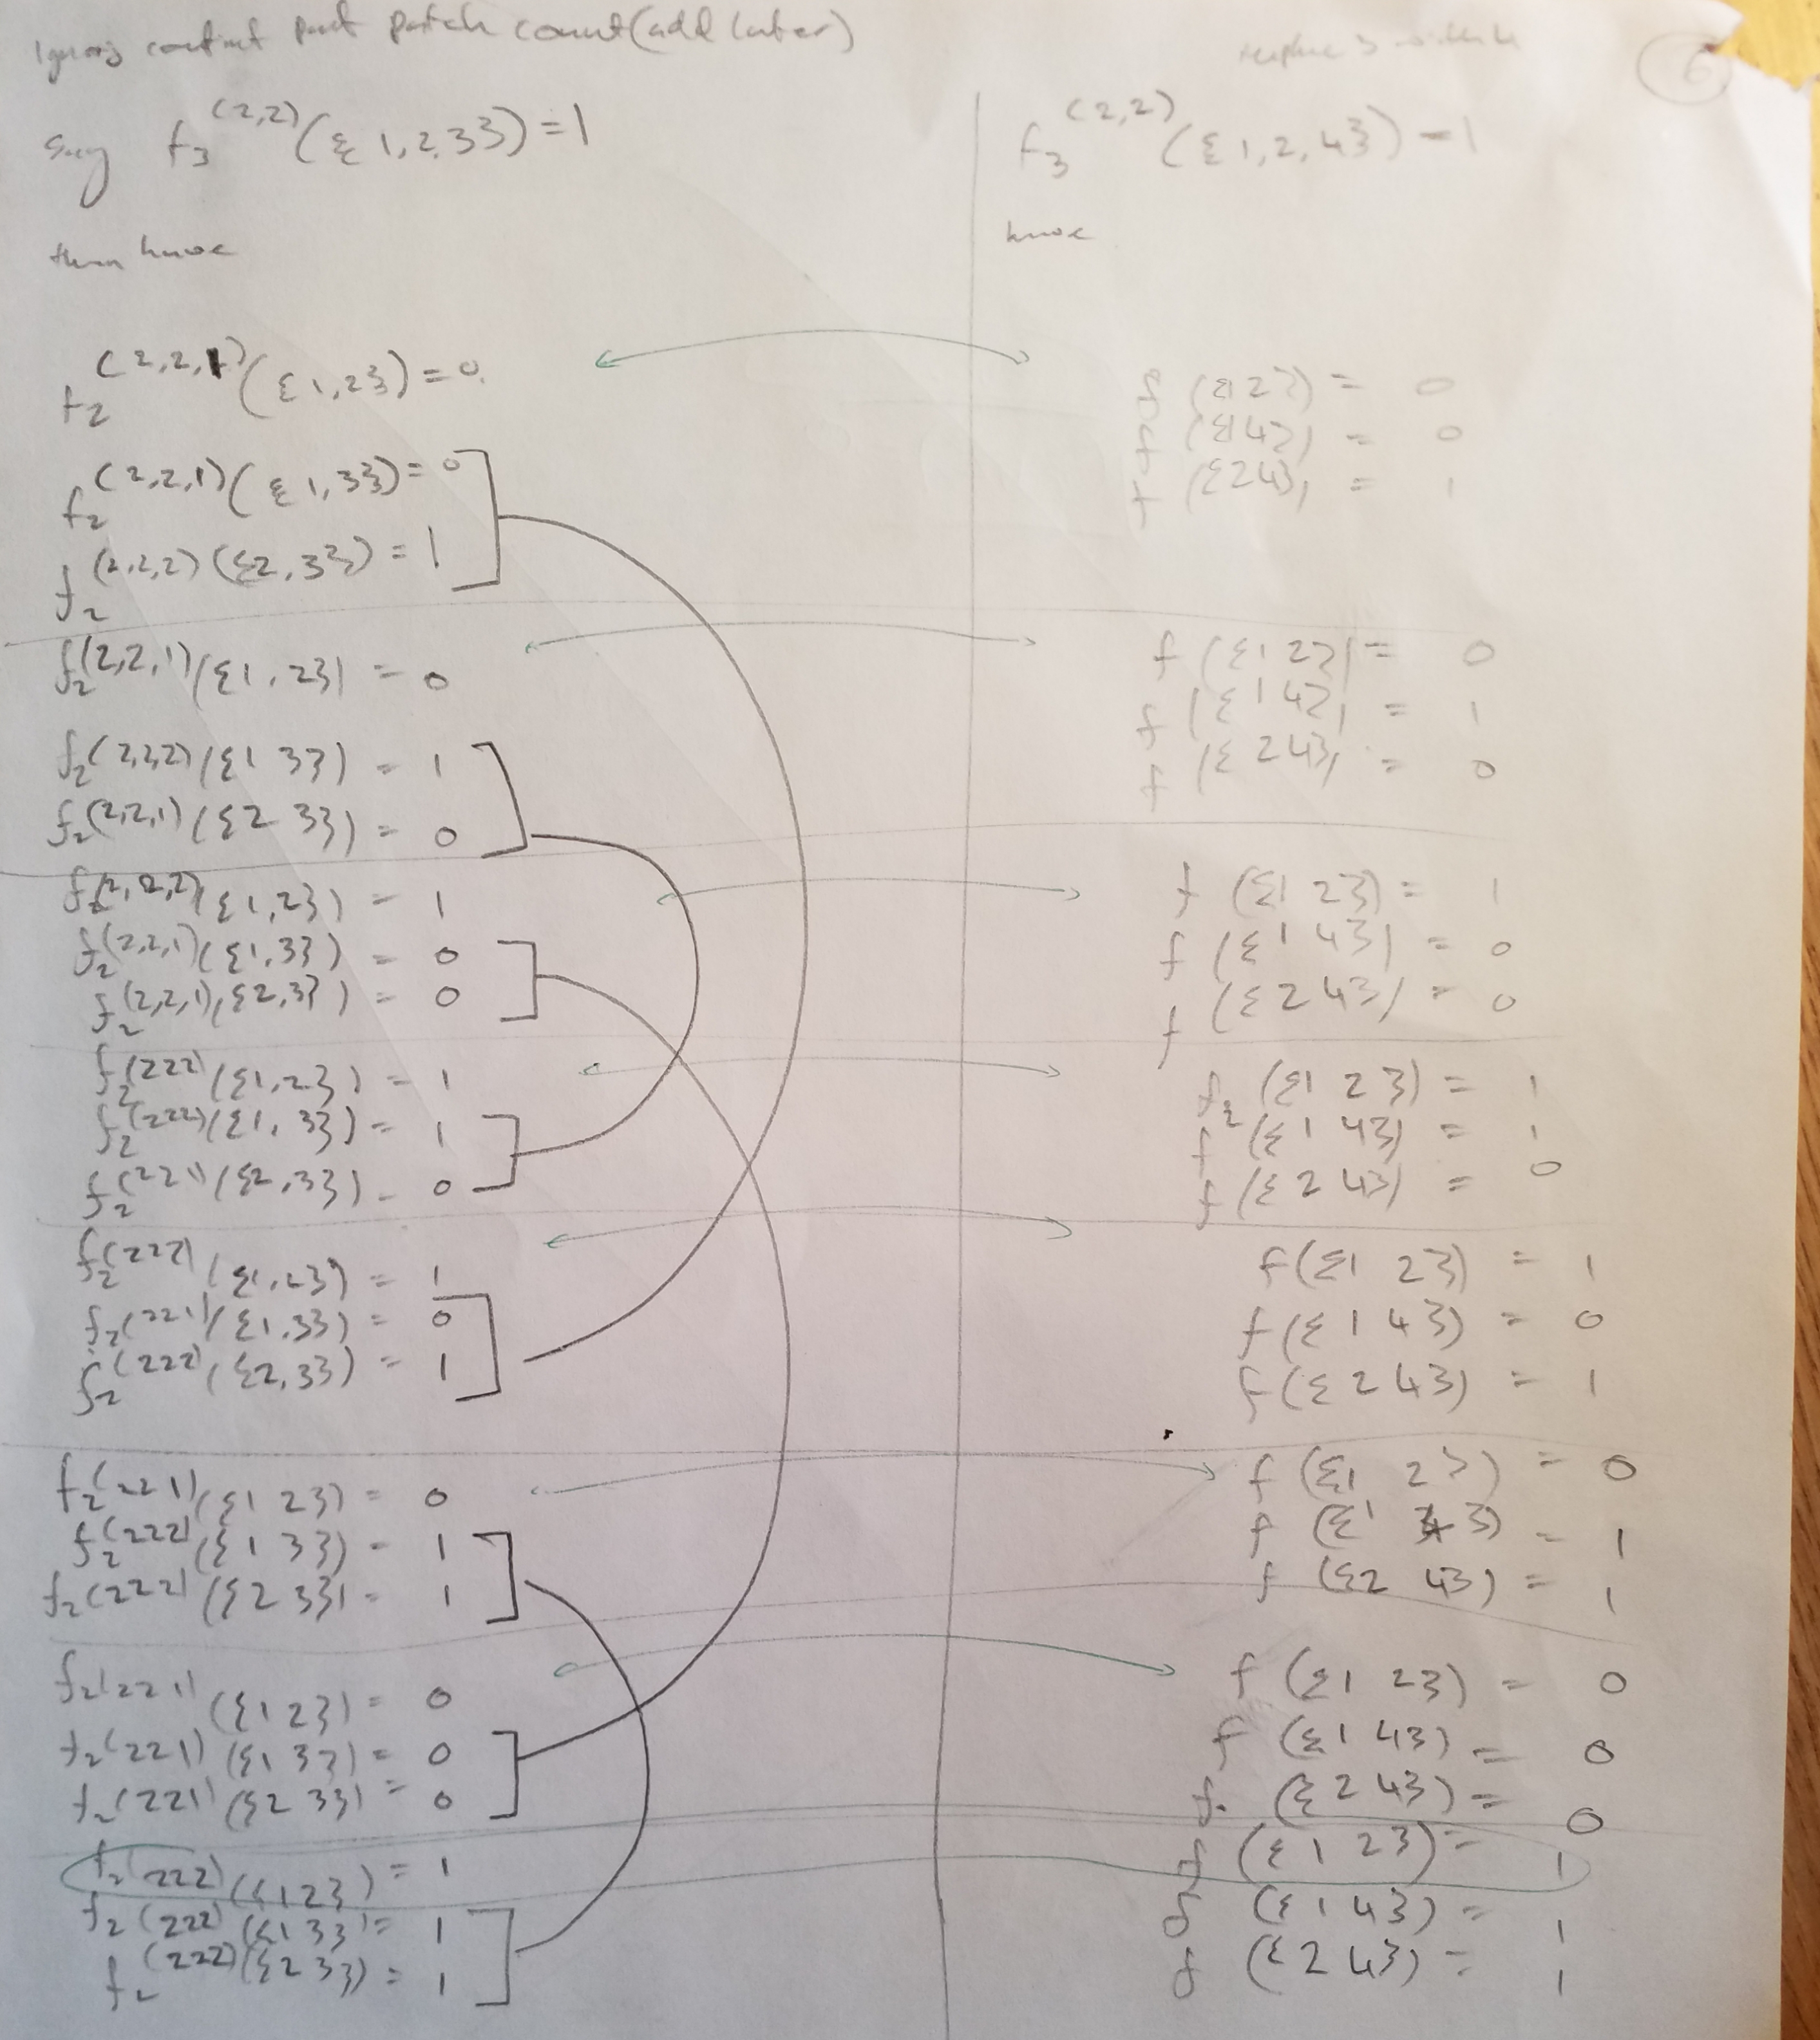 Ignoring constant part patch count (add later)
replace 3 with 4
6
Say f₃^(2,2)({1,2,3})=1
then have
f₂^(2,2,1)({1,2})=0
f₂^(2,2,1)({1,3})=0
f₂^(2,2,2)({2,3})=1
f₂^(2,2,1)({1,2})=0
f₂^(2,2,2)({1 3})=1
f₂^(2,2,1)({2 3})=0
f₂^(2,2,2)({1,2})=1
f₂^(2,2,1)({1,3})=0
f₂^(2,2,1)({2,3})=0
f₂^(222)({1,2})=1
f₂^(222)({1,3})=1
f₂^(221)({2,3})=0
f₂^(222)({1,2})=1
f₂^(221)({1,3})=0
f₂^(222)({2,3})=1
f₂^(221)({1 2})=0
f₂^(222)({1 3})=1
f₂^(222)({2 3})=1
f₂^(221)({1 2})=0
f₂^(221)({1 3})=0
f₂^(221)({2 3})=0
f₂^(222)({1 2})=1
f₂^(222)({1 3})=1
f₂^(222)({2 3})=1
f₃^(2,2)({1,2,4})=1
have
f({1 2})=0
f({1 4})=0
f({2 4})=1
f({1 2})=0
f({1 4})=1
f({2 4})=0
f({1 2})=1
f({1 4})=0
f({2 4})=0
f₂({1 2})=1
f({1 4})=1
f({2 4})=0
f({1 2})=1
f({1 4})=0
f({2 4})=1
f({1 2})=0
f({1 4})=1
f({2 4})=1
f({1 2})=0
f({1 4})=0
f({2 4})=0
f({1 2})=1
f({1 4})=1
f({2 4})=1